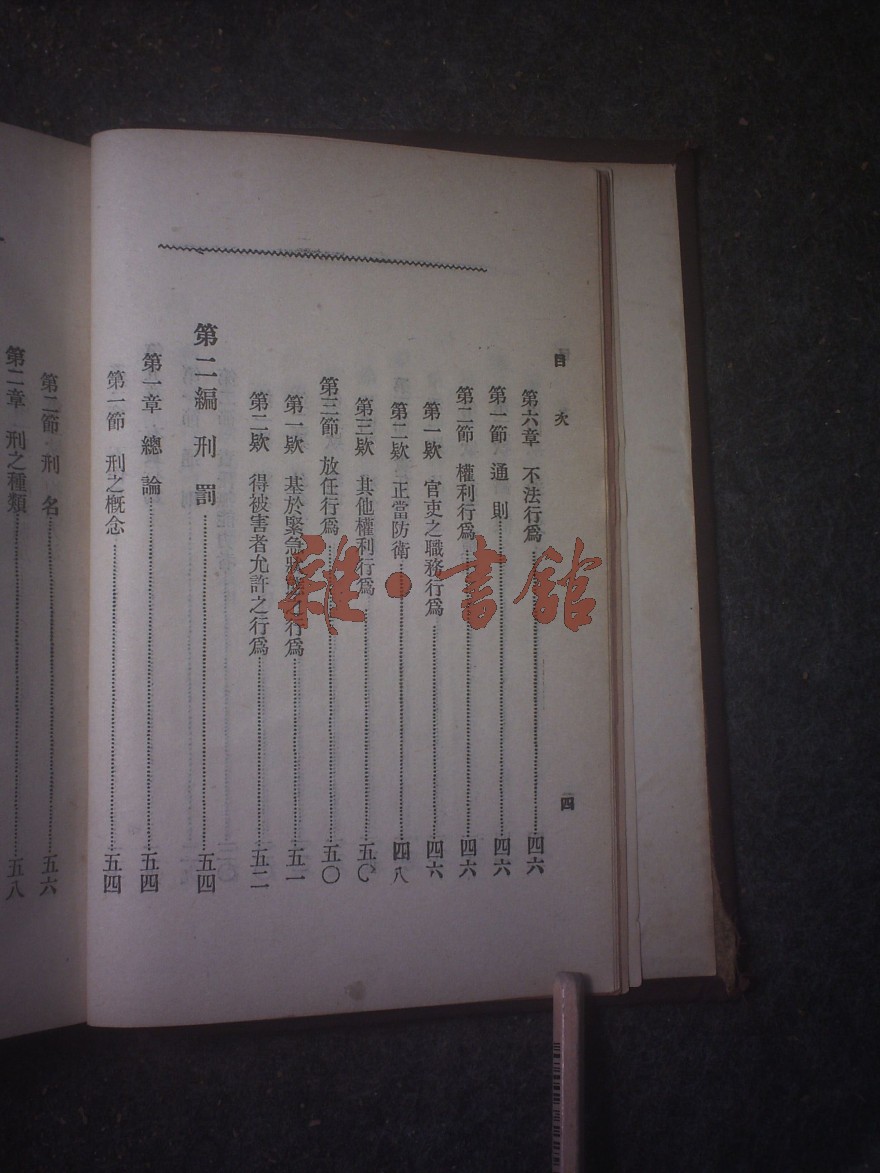 目次
四
第六章 不法行爲 四六
第一節 通則 四六
第二節 權利行爲 四六
第一欵 官吏之職務行爲 四六
第二欵 正當防衛 四八
第三欵 其他權利行爲 五〇
第三節 放任行爲 五〇
第一欵 基於緊急狀態之行爲 五一
第二欵 得被害者允許之行爲 五二
第二編 刑罰 五四
第一章 總論 五四
第一節 刑之概念 五四
第二節 刑名 五六
第二章 刑之種類 五八
雜·書館